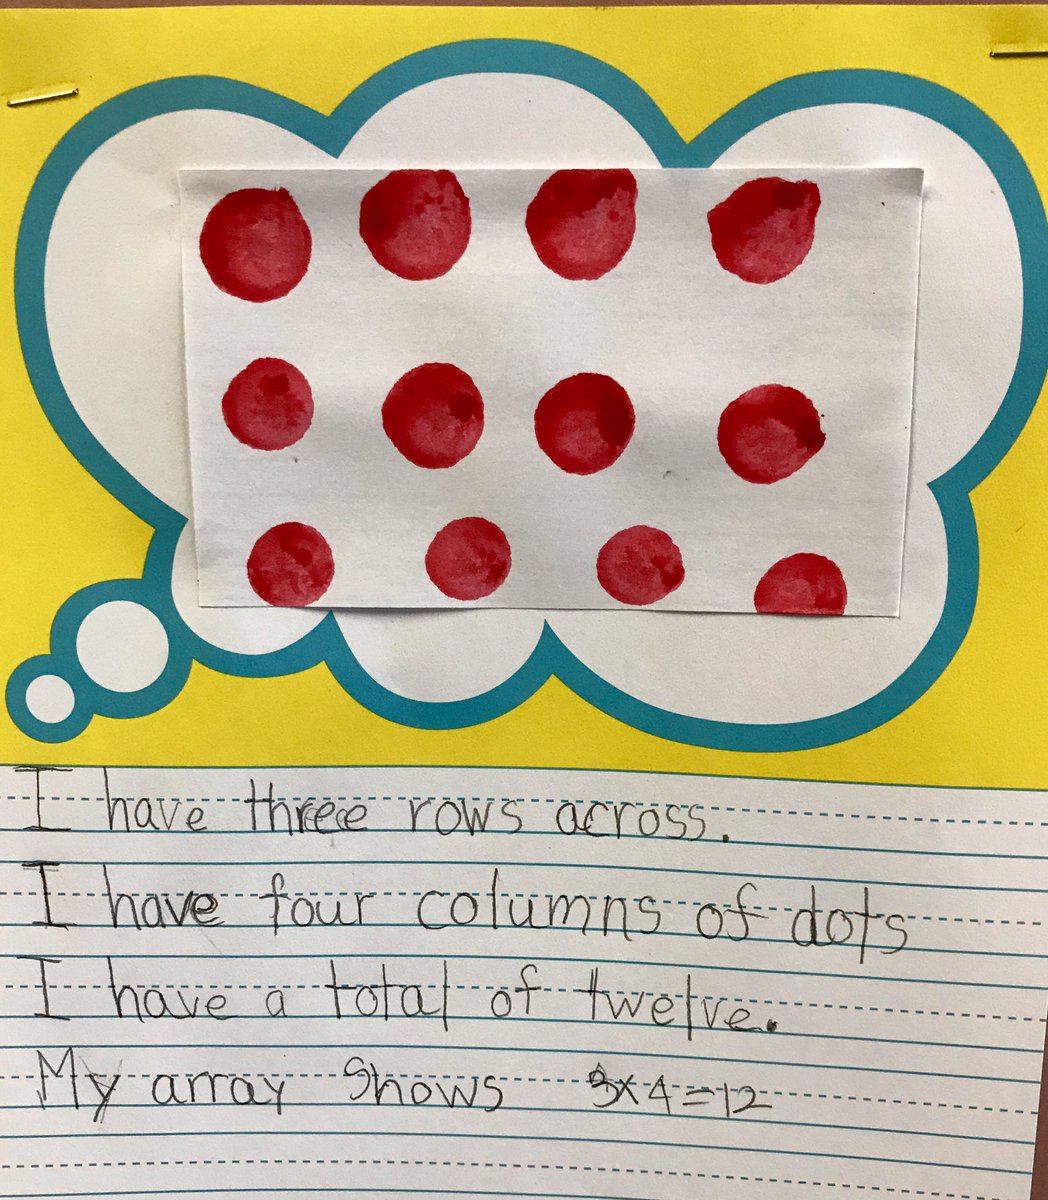 I have three rows across.
I have four columns of dots
I have a total of twelve.
My array shows 3x4=12